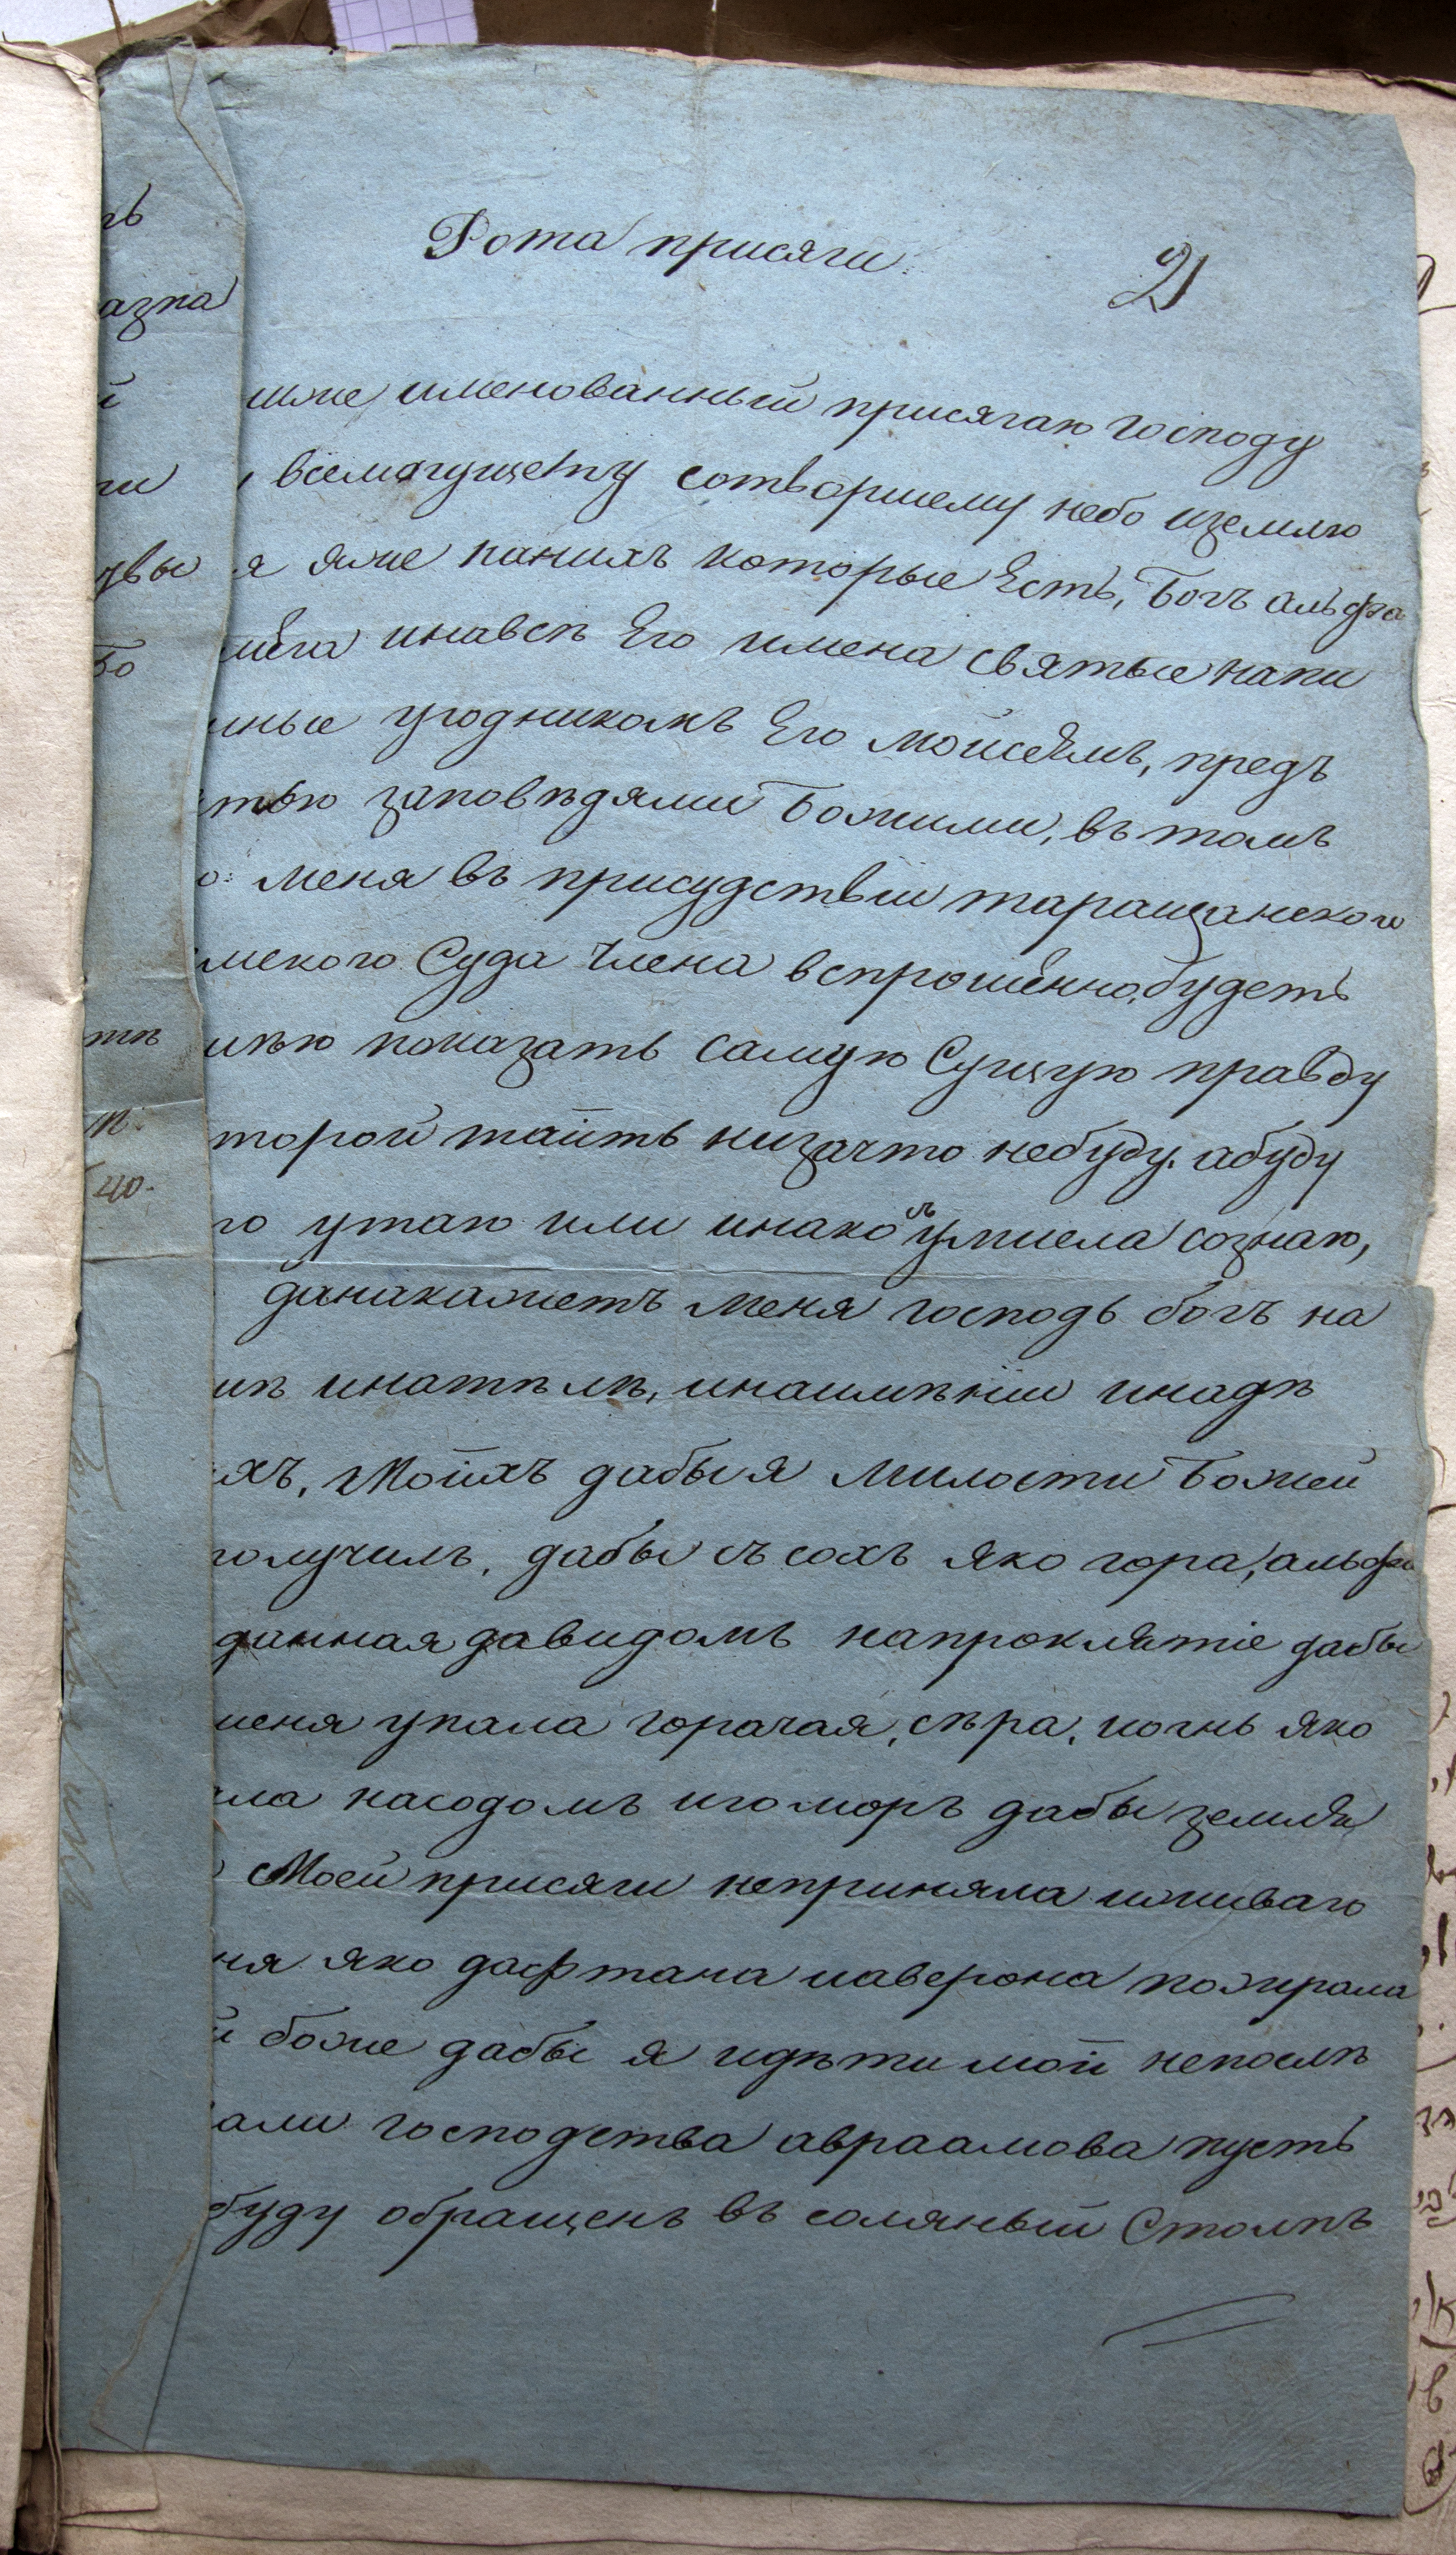 Рота присяги
21
иже именованный присягаю господу
всемогущему сотворшему небо иземлю
я яже наних которые Есть, Богъ альфа
мега инавсѣ Его имена святые напи
нные угодникомъ Его мойсеямъ, предъ
тью заповѣдями Божими, въ томъ
о: меня въ присудствіи таращанского
мского Суда Члена вспрошенно, будетъ
мѣю показать самую Сущую правду
торой таить низачто небуду. абуду
го утаю или инако съ умисла сознаю,
данакажетъ меня господь богъ на
шѣ инатѣлѣ, инаимѣніи инадѣ
яхъ, Моихъ дабы я Милости Божей
получилъ, дабы съ сохъ яко гора, альфа
данная давидомъ напроклятіе дабы
меня упала горачая, сѣра, иогнь яко
ла насодомъ игоморъ дабы земля
Моей присяги неприняла иживаго
ня яко дафтана иаверона пожирала
й боже дабы я идѣти мой непослѣ
али господства авраамова пусть
буду обращенъ въ соляный Столпъ
ть
азка
й
ги
увы
Бо
тѣ
40.